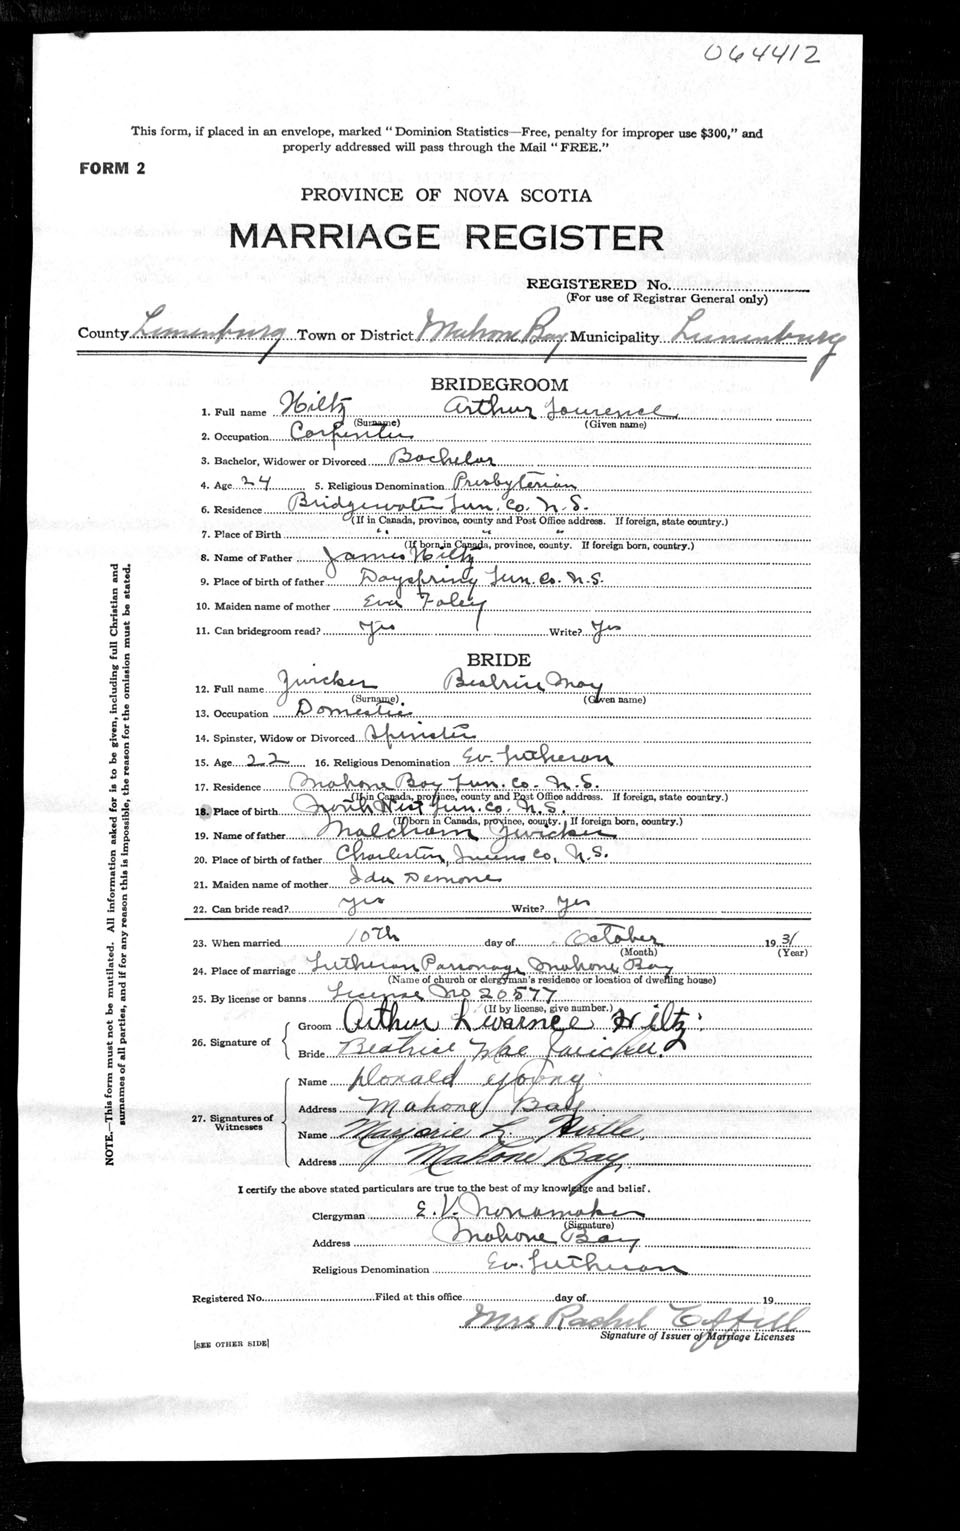 064412
This form, if placed in an envelope, marked "Dominion Statistics—Free, penalty for improper use $300," and
properly addressed will pass through the Mail "FREE."
FORM 2
PROVINCE OF NOVA SCOTIA
MARRIAGE REGISTER
REGISTERED No.
(For use of Registrar General only)
County Lunenburg Town or District Mahone Bay Municipality Lunenburg
BRIDEGROOM
1. Full name Hiltz Arthur Lourence
(Surname) (Given name)
2. Occupation Carpenter
3. Bachelor, Widower or Divorced Bachelor
4. Age 24 5. Religious Denomination Presbyterian
6. Residence Bridgewater Lun. Co. N.S.
(If in Canada, province, county and Post Office address. If foreign, state country.)
7. Place of Birth " " "
(If born in Canada, province, county. If foreign born, country.)
8. Name of Father James Hiltz
9. Place of birth of father Dayspring Lun. Co. N.S.
10. Maiden name of mother Eva Foley
11. Can bridegroom read? Yes Write? Yes
BRIDE
12. Full name Zwicker Beatrice May
(Surname) (Given name)
13. Occupation Domestic
14. Spinster, Widow or Divorced Spinster
15. Age 22 16. Religious Denomination Ev. Lutheran
17. Residence Mahone Bay Lun. Co. N.S.
(If in Canada, province, county and Post Office address. If foreign, state country.)
18. Place of birth North West Lun. Co. N.S.
(If born in Canada, province, county. If foreign born, country.)
19. Name of father Malcham Zwicker
20. Place of birth of father Charleston, Queens Co, N.S.
21. Maiden name of mother Ida Demone
22. Can bride read? Yes Write? Yes
23. When married 10th day of October 1931
(Month) (Year)
24. Place of marriage Lutheran Parsonage Mahone Bay
(Name of church or clergyman's residence or location of dwelling house)
25. By license or banns License No 20577
(If by license, give number.)
26. Signature of
Groom Arthur Lwarnce Hiltz
Bride Beatrice Mae Zwicker
27. Signatures of Witnesses
Name Donald Young
Address Mahone Bay
Name Marjorie L. Hirtle
Address Mahone Bay
I certify the above stated particulars are true to the best of my knowledge and belief.
Clergyman E. V. Nonamaker
(Signature)
Address Mahone Bay
Religious Denomination Ev. Lutheran
Registered No. Filed at this office day of 19
Mrs Rachel
Signature of Issuer of Marriage Licenses
[SEE OTHER SIDE]
NOTE.—This form must not be mutilated. All information asked for is to be given, including full Christian and
surnames of all parties, and if for any reason this is impossible, the reason for the omission must be stated.